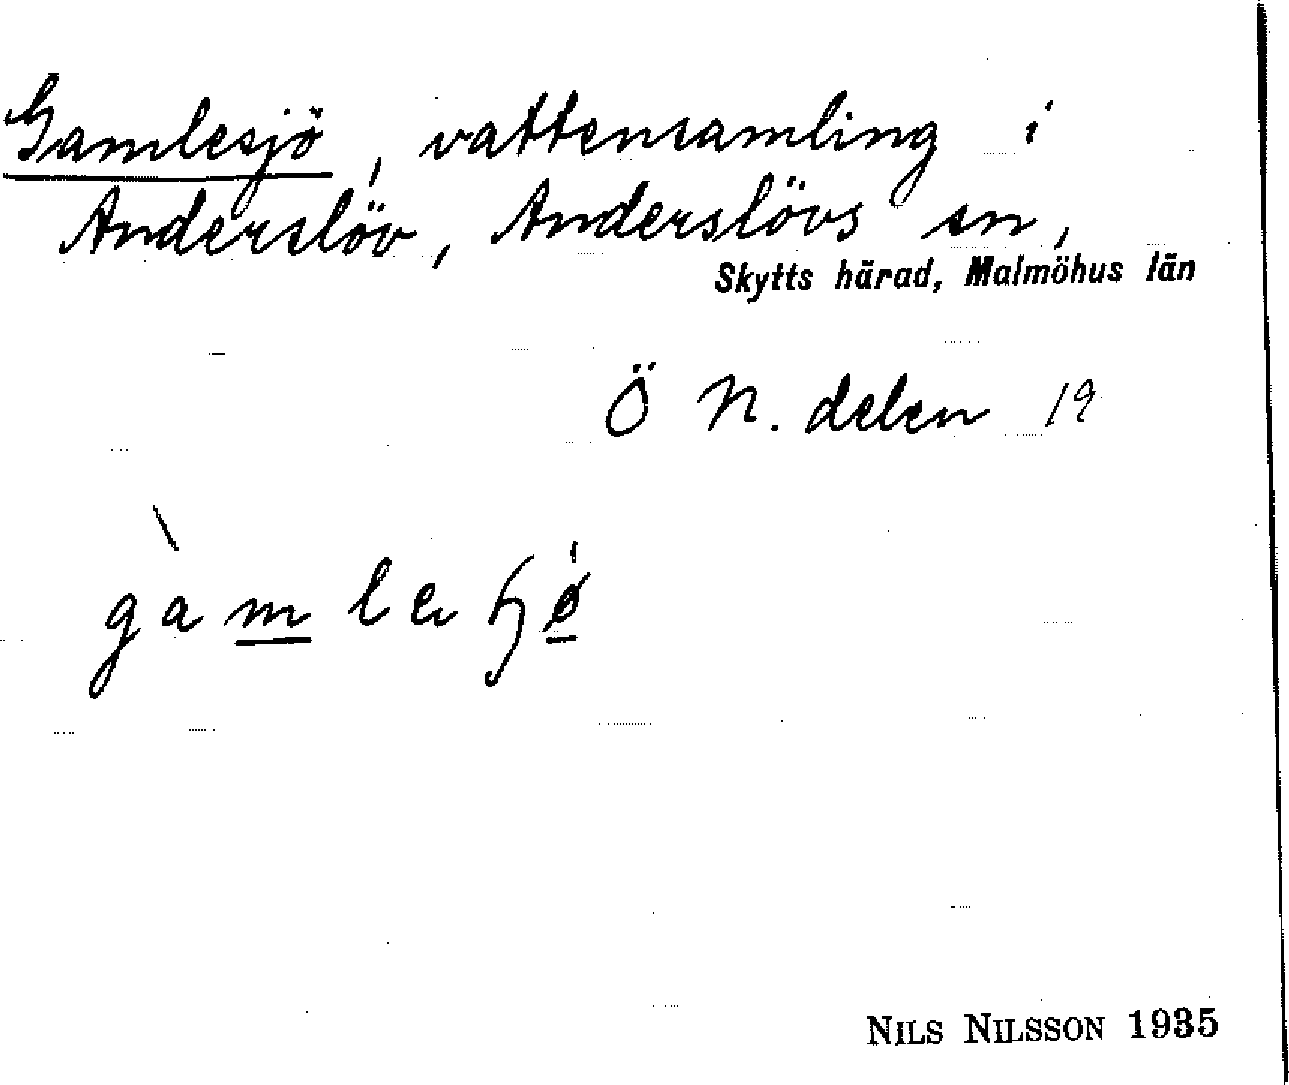 Gamlesjö, vattensamling i
Anderslöv, Anderslövs sn,
Skytts härad, Malmöhus län
Ö N. delen 19
NILS NILSSON 1935